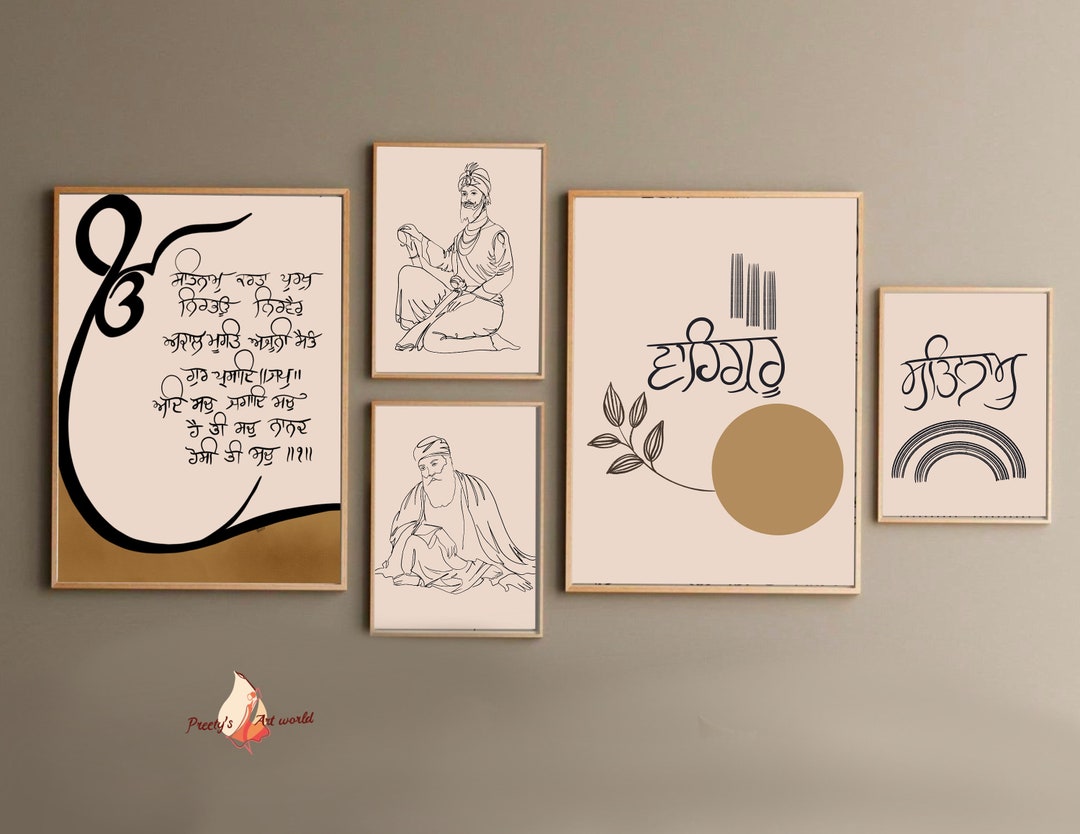 ੴ
ਸਤਿਨਾਮੁ ਕਰਤਾ ਪੁਰਖੁ
ਨਿਰਭਉ ਨਿਰਵੈਰੁ
ਅਕਾਲ ਮੂਰਤਿ ਅਜੂਨੀ ਸੈਭੰ
ਗੁਰ ਪ੍ਰਸਾਦਿ॥ਜਪੁ॥
ਆਦਿ ਸਚੁ ਜੁਗਾਦਿ ਸਚੁ
ਹੈ ਭੀ ਸਚੁ ਨਾਨਕ
ਹੋਸੀ ਭੀ ਸਚੁ ॥੧॥
ਵਾਹਿਗੁਰੂ
ਸਤਿਨਾਮੁ
Preety's Art world